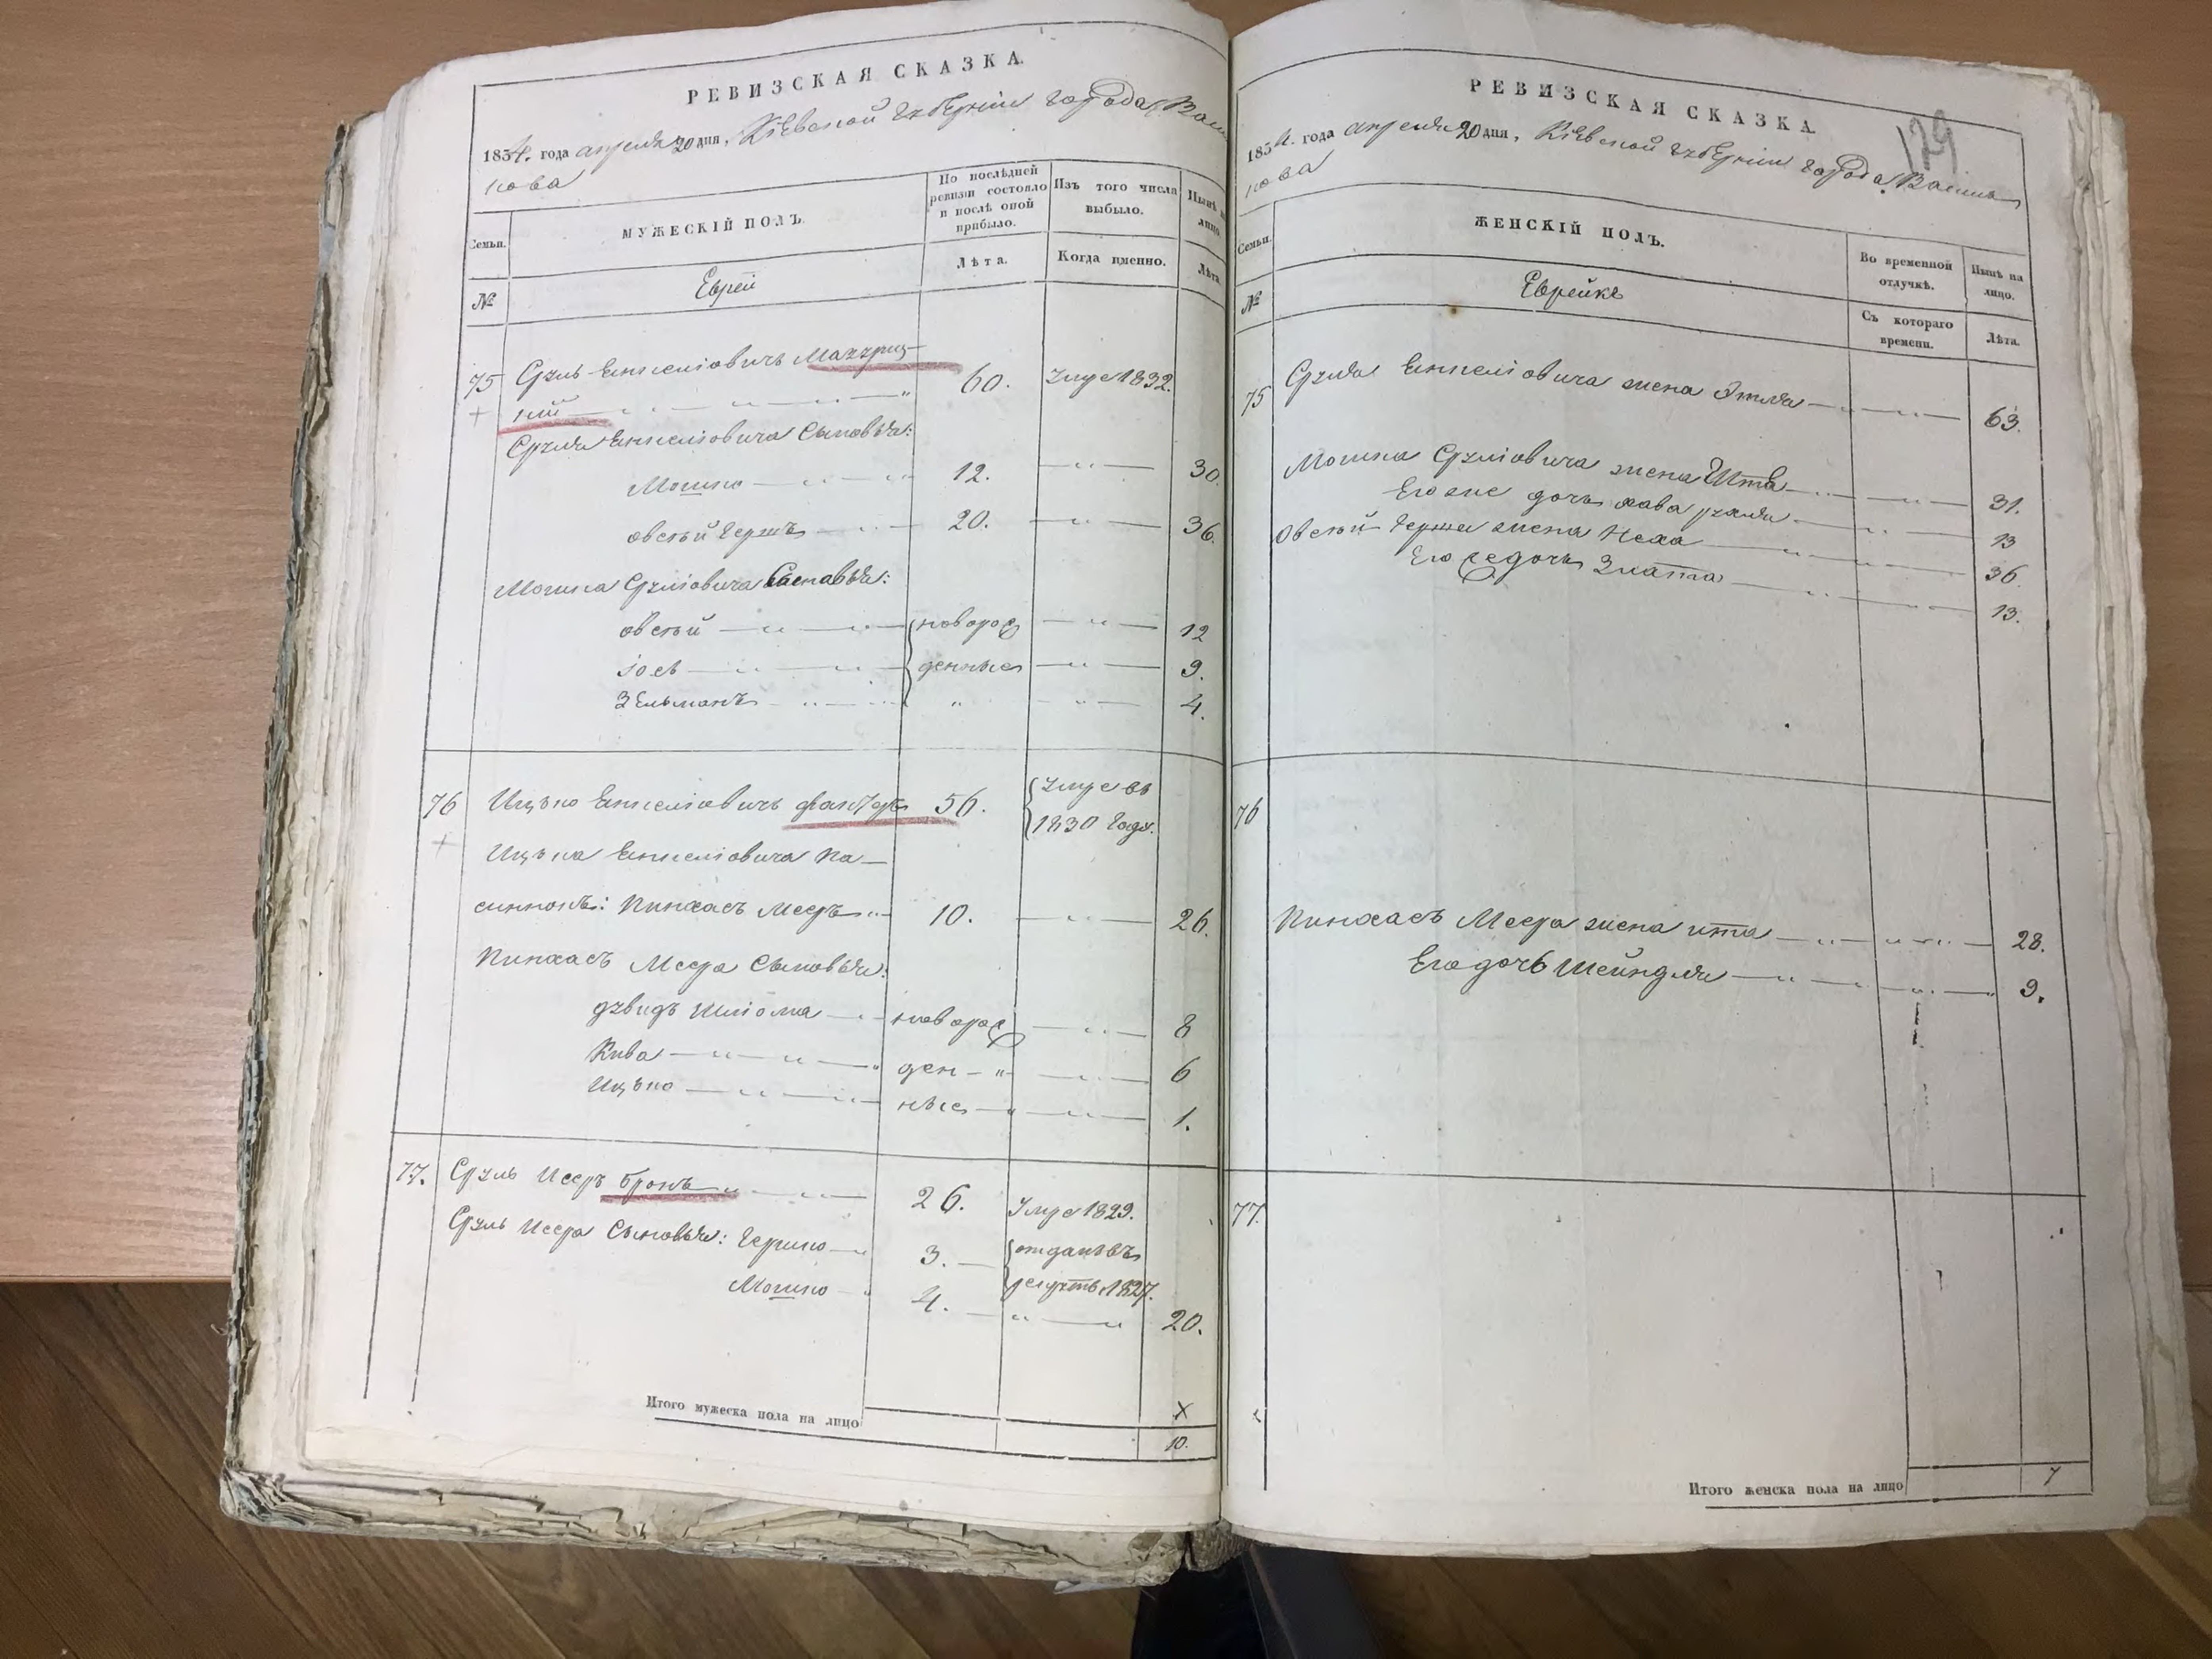 РЕВИЗСКАЯ СКАЗКА.
1834. года апреля 20 дня, Кіевской губерніи города Васил
кова
Семьи.
МУЖЕСКІЙ ПОЛЪ.
По послѣдней ревизіи состояло и послѣ оной прибыло.
Изъ того числа выбыло.
Нынѣ на лицо
№
Еврей
Лѣта.
Когда именно.
Лѣта
75
Срулъ
60.
Умре 1832.
Сруля сыновья:
Мошко 12. 30.
овсѣй Гершъ 20. 36.
Мошка Сруліовича сыновья:
овсѣй новорож 12
іось денные 9.
Зельманъ 4.
76
Ицъко 56.
Умре въ
1830 году.
Ицъка па
сынокъ: Пинхасъ Мееръ 10. 26.
Пинхасъ Меера сыновья:
Шліома новорож 8
Кива ден 6
Ицъко ные 1.
77. Сруль Исеръ бронъ 26. Умре 1829.
Сруль Исера сыновья: Гершко 3. отданъ въ
рекруты 1827.
Мошко 4. 20.
Итого мужеска пола на лицо
10.
РЕВИЗСКАЯ СКАЗКА
179
1834. года апреля 20 дня, Кіевской губерніи города Васил
кова
Семьи.
ЖЕНСКІЙ ПОЛЪ.
Во временной отлучкѣ.
Нынѣ на лицо.
№
Еврейки
Съ котораго времени.
Лѣта.
75
Сруля жена Этля 63.
Мошка Сруліовича жена Ита 31.
Его же дочь хава рухля 13
Овсѣй Герша жена Неха 36
Его же дочь Злата 13.
76
Пинхасъ Меера жена ита 28.
Его дочь Шейндля 9.
77.
Итого женска пола на лицо
7